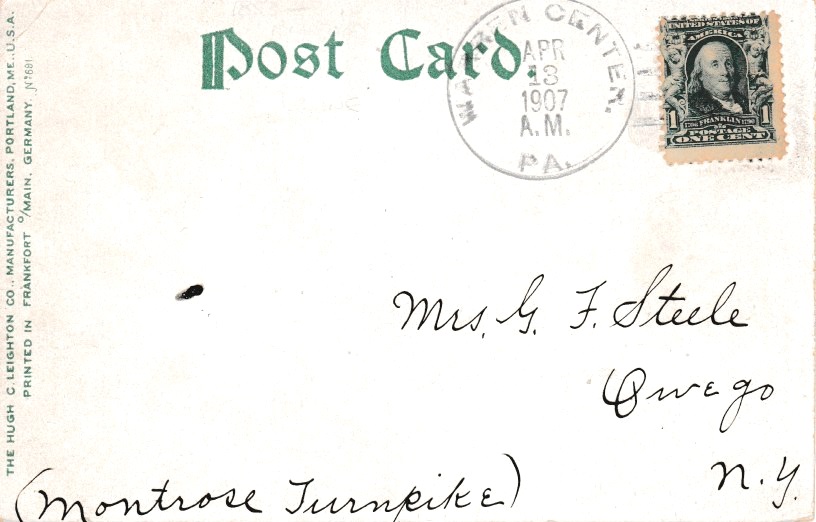 Post Card.
WARREN CENTER,
APR
13
1907
A.M.
PA.
UNITED STATES OF
AMERICA
1 1706 FRANKLIN 1790 1
POSTAGE
ONE CENT
THE HUGH C. LEIGHTON CO., MANUFACTURERS, PORTLAND, ME., U.S.A.
PRINTED IN FRANKFORT O/MAIN, GERMANY.
Mrs. G. F. Steele
Owego
N.Y.
(Montrose Turnpike)